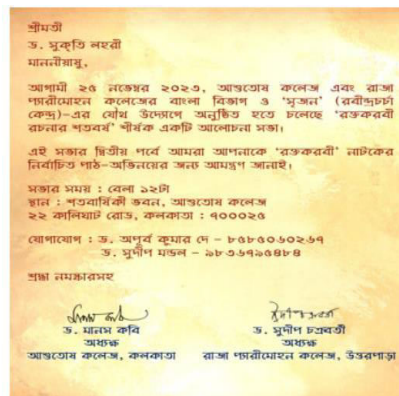 শ্রীমতী
ড. সুকৃতি লহরী
মাননীয়াষু,
আগামী ২৫ নভেম্বর ২০২৩, আশুতোষ কলেজ এবং রাজা
প্যারীমোহন কলেজের বাংলা বিভাগ ও 'সৃজন' (রবীন্দ্রচর্চা
কেন্দ্র)-এর যৌথ উদ্যোগে অনুষ্ঠিত হতে চলেছে 'রক্তকরবী
রচনার শতবর্ষ' শীর্ষক একটি আলোচনা সভা।
এই সভার দ্বিতীয় পর্বে আমরা আপনাকে 'রক্তকরবী' নাটকের
নির্বাচিত পাঠ-অভিনয়ের জন্য আমন্ত্রণ জানাই।
সভার সময় : বেলা ১২টা
স্থান : শতবার্ষিকী ভবন, আশুতোষ কলেজ
২২ কালিঘাট রোড, কলকাতা : ৭০০০২৫
যোগাযোগ : ড. অপূর্ব কুমার দে - ৮৫৮৫০৬০২৬৭
ড. সুদীপ মন্ডল - ৯৮৩৬৭৯৫৪৮৪
শ্রদ্ধা নমস্কারসহ
ড. মানস কবি
ড. সুদীপ চক্রবর্তী
অধ্যক্ষ
অধ্যক্ষ
আশুতোষ কলেজ, কলকাতা
রাজা প্যারীমোহন কলেজ, উত্তরপাড়া